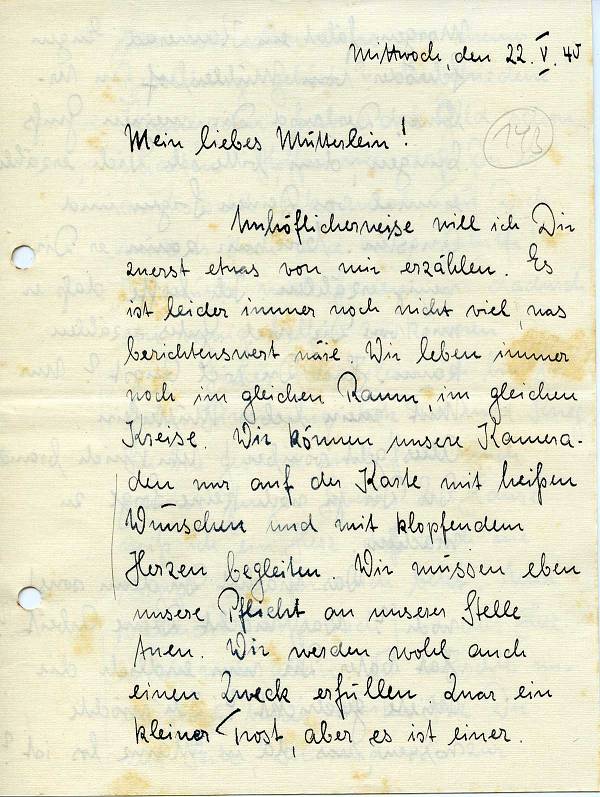 Mittwoch, den 22. V. 40
Mein liebes Mütterlein!
143
Unhöflicherweise will ich Dir
zuerst etwas von mir erzählen. Es
ist leider immer noch nicht viel, was
berichtenswert wäre. Wir leben immer
noch im gleichen Raum, im gleichen
Kreise. Wir können unsere Kamera-
den nur auf der Karte mit heißen
Wünschen und mit klopfendem
Herzen begleiten. Wir müssen eben
unsere Pflicht an unserer Stelle
tuen. Wir werden wohl auch
einen Zweck erfüllen. Zwar ein
kleiner Trost aber es ist einer.